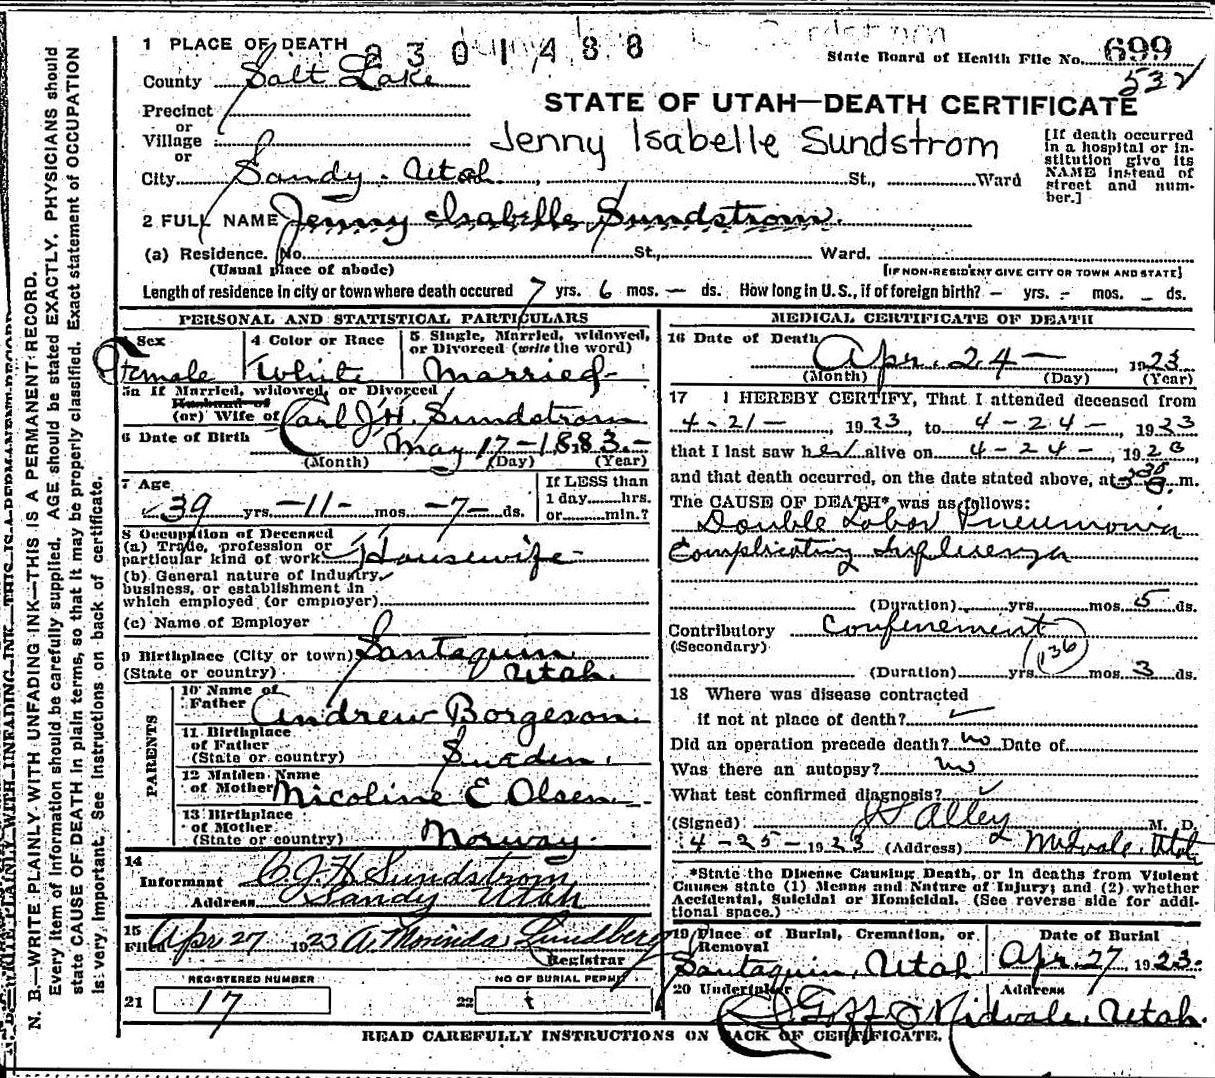 2301488
1 PLACE OF DEATH
State Board of Health File No. 699
532
County Salt Lake
STATE OF UTAH—DEATH CERTIFICATE
Precinct
or
Village
or
Jenny Isabelle Sundstrom
[If death occurred in a hospital or institution give its NAME instead of street and number.]
City Sandy. Utah. St., Ward
2 FULL NAME Jenny Isabelle Sundstrom.
(a) Residence. No. St., Ward.
(Usual place of abode) [IF NON-RESIDENT GIVE CITY OR TOWN AND STATE]
Length of residence in city or town where death occured 7 yrs. 6 mos. — ds. How long in U.S., if of foreign birth? – yrs. – mos. – ds.
PERSONAL AND STATISTICAL PARTICULARS
3 Sex Female
4 Color or Race White
5 Single, Married, widowed, or Divorced (write the word) Married
5a If Married, widowed, or Divorced
Husband of
(or) Wife of Carl J. H. Sundstrom
6 Date of Birth May 17–1883.–
(Month) (Day) (Year)
7 Age
39 yrs. –11– mos. –7– ds.
If LESS than
1 day......hrs.
or......min.?
8 Occupation of Deceased
(a) Trade, profession or
particular kind of work Housewife
(b) General nature of Industry,
business, or establishment in
which employed (or employer)
(c) Name of Employer
9 Birthplace (City or town) Santaquin
(State or country) Utah.
PARENTS
10 Name of
Father Andrew Borgeson.
11 Birthplace
of Father
(State or country) Sweden.
12 Maiden Name
of Mother Nicoline E Olsen
13 Birthplace
of Mother
(State or country) Norway.
14
Informant C. J. H Sundstrom
Address Sandy Utah
15
Filed Apr 27 1923 A. Morinda Lundberg
Registrar
REGISTERED NUMBER
NO OF BURIAL PERMIT
21 17
22 1
MEDICAL CERTIFICATE OF DEATH
16 Date of Death Apr. 24– 1923
(Month) (Day) (Year)
17 I HEREBY CERTIFY, That I attended deceased from
4-21–, 1923, to 4-24–, 1923
that I last saw her alive on 4-24–, 1923,
and that death occurred, on the date stated above, at m.
The CAUSE OF DEATH* was as follows:
Double Lobar Pneumonia
Complicating Influenza
(Duration) yrs. mos. 5 ds.
Contributory Confinement
(Secondary)
136
(Duration) yrs. mos. 3 ds.
18 Where was disease contracted
if not at place of death?
Did an operation precede death? no Date of
Was there an autopsy? no
What test confirmed diagnosis?
(Signed) Alley M. D.
4-25-1923 (Address) Midvale, Utah
*State the Disease Causing Death, or in deaths from Violent
Causes state (1) Means and Nature of Injury; and (2) whether
Accidental, Suicidal or Homicidal. (See reverse side for addi-
tional space.)
19 Place of Burial, Cremation, or
Removal
Santaquin, Utah
Date of Burial
Apr. 27 1923.
20 Undertaker
Address
Goff Midvale, Utah.
READ CAREFULLY INSTRUCTIONS ON BACK OF CERTIFICATE.
N. B.—WRITE PLAINLY WITH UNFADING INK—THIS IS A PERMANENT RECORD.
Every item of information should be carefully supplied. AGE should be stated EXACTLY. PHYSICIANS should
state CAUSE OF DEATH in plain terms, so that it may be properly classified. Exact statement of OCCUPATION
is very important. See instructions on back of certificate.